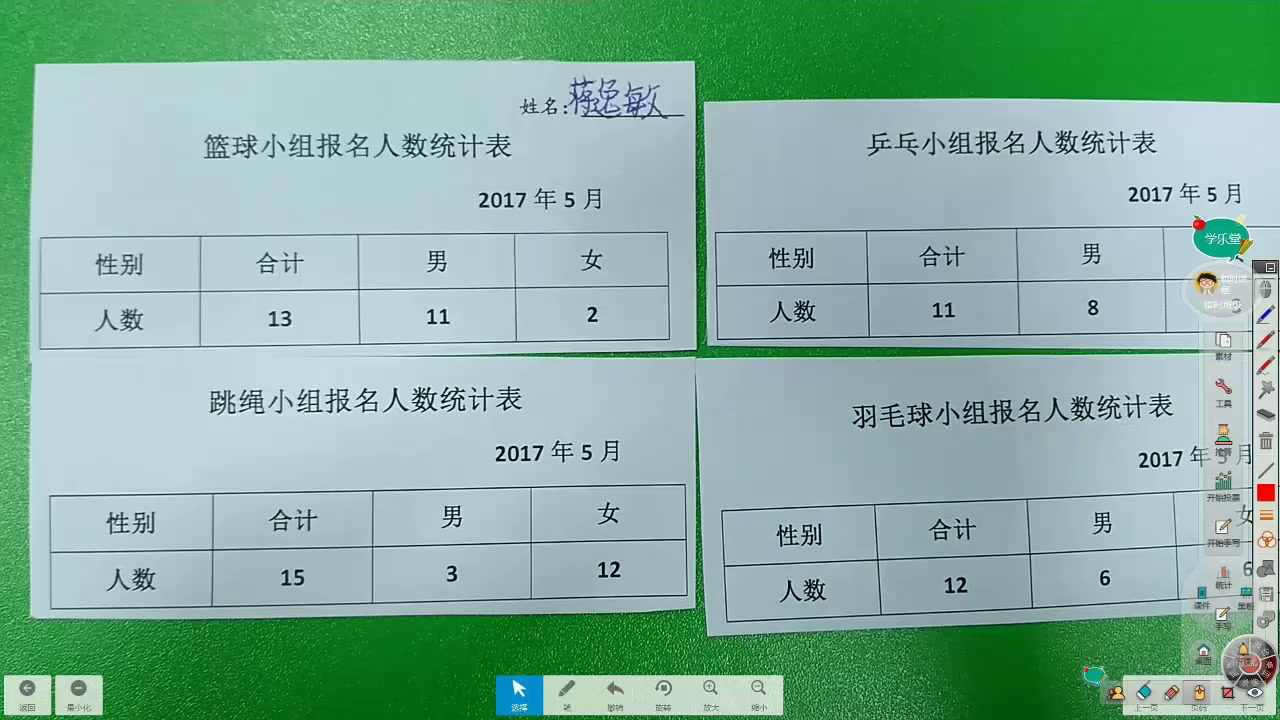 姓名：蒋逸敏
篮球小组报名人数统计表
2017 年 5 月
性别 合计 男 女
人数 13 11 2
乒乓小组报名人数统计表
2017 年 5 月
性别 合计 男
人数 11 8
跳绳小组报名人数统计表
2017 年 5 月
性别 合计 男 女
人数 15 3 12
羽毛球小组报名人数统计表
2017 年 5 月
性别 合计 男 女
人数 12 6 6
学乐堂
素材
工具
抢答
开始投票
开始手写
统计
课件 黑板
手写
桌面
返回 最小化 选择 笔 撤销 旋转 放大 缩小 上一页 页码 下一页